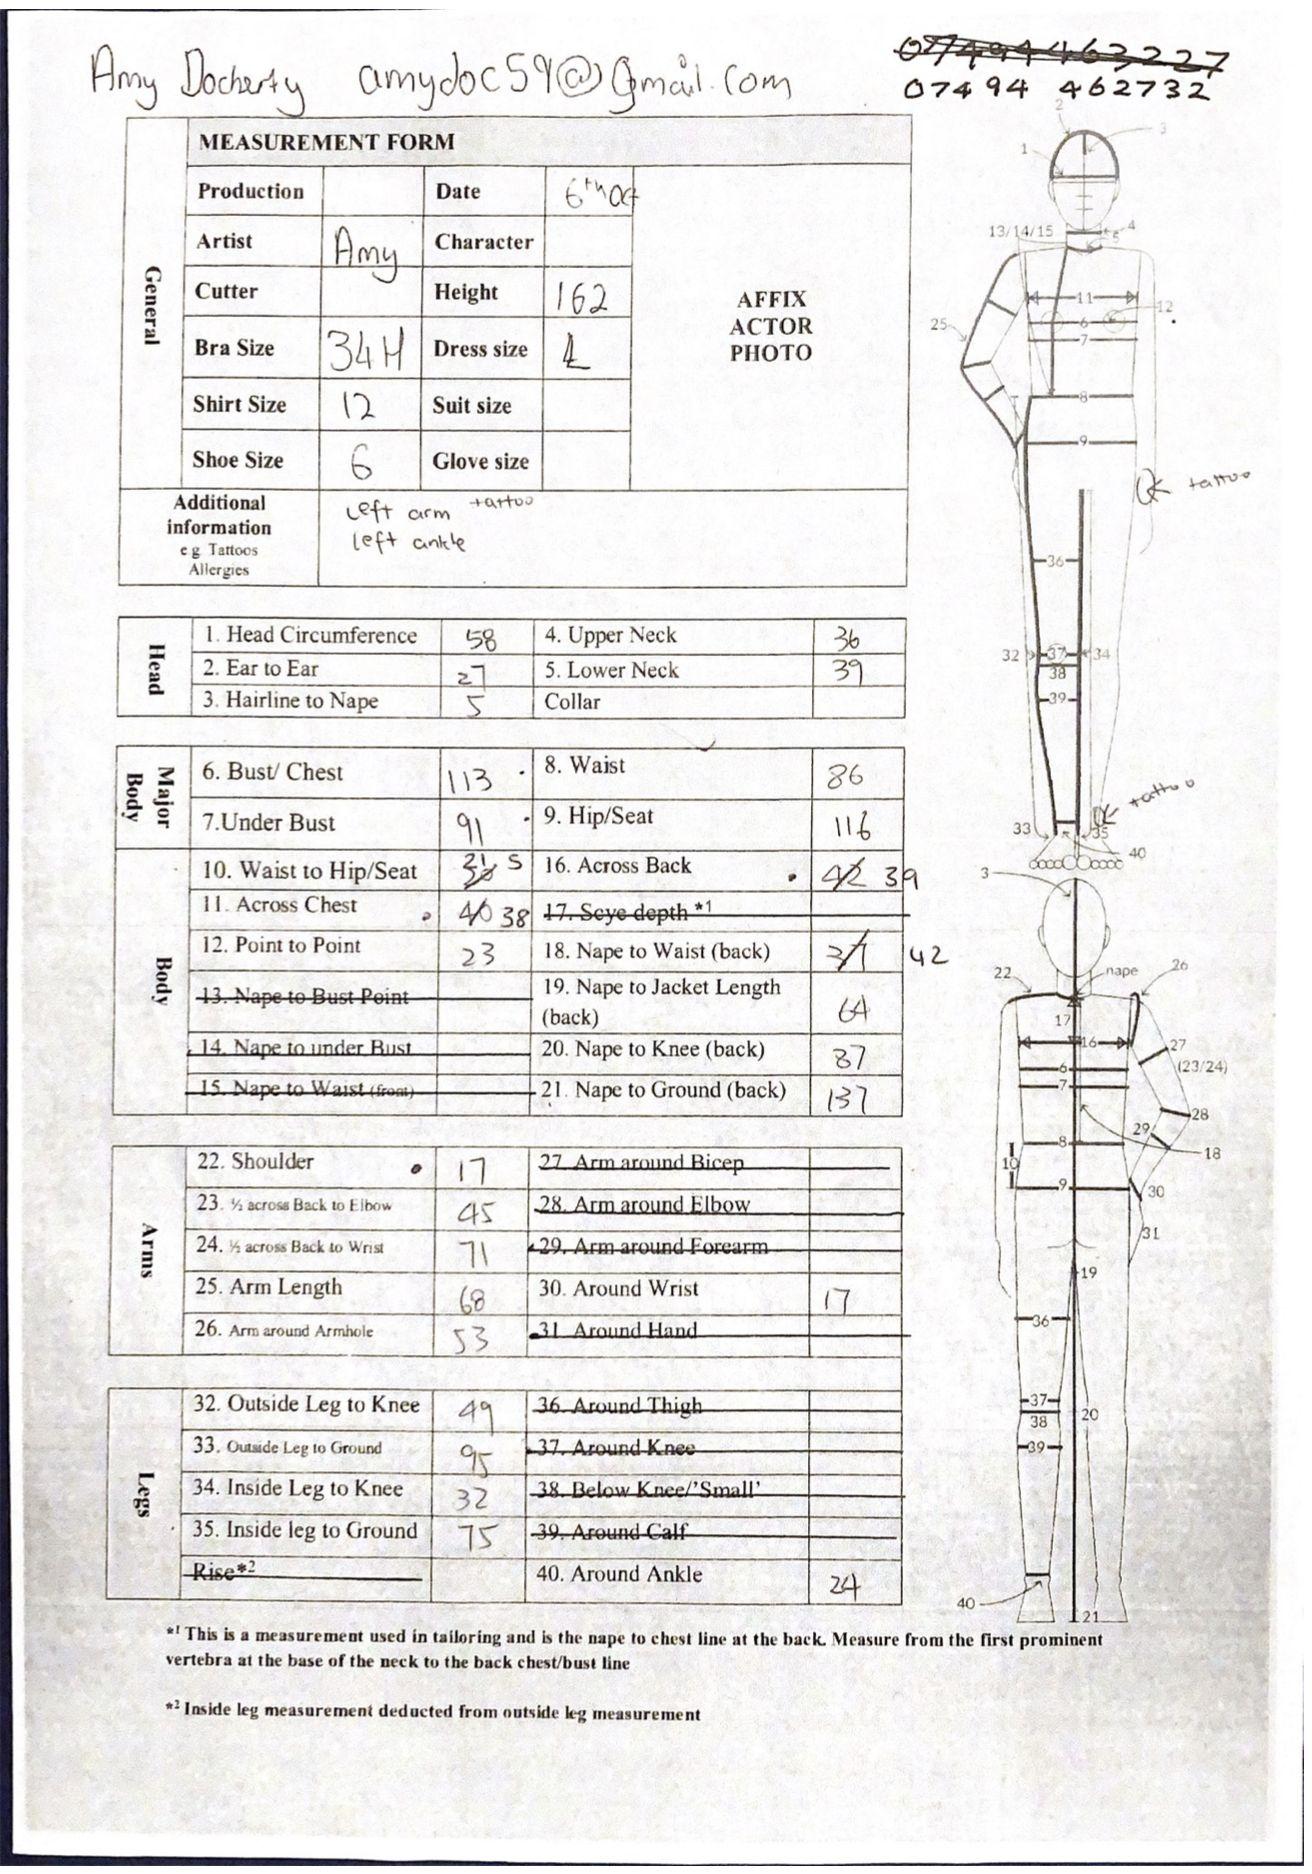 Amy Docherty amydoc59@gmail.com
07494 462732
MEASUREMENT FORM
General
Production
Date 6th Oct
Artist Amy
Character
Cutter
Height 162
Bra Size 34H
Dress size L
Shirt Size 12
Suit size
Shoe Size 6
Glove size
AFFIX
ACTOR
PHOTO
Additional
information
e g Tattoos
Allergies
Left arm tattoo
left ankle
Head
1. Head Circumference 58
4. Upper Neck 36
2. Ear to Ear 27
5. Lower Neck 39
3. Hairline to Nape 5
Collar
Major
Body
6. Bust/ Chest 113
8. Waist 86
7.Under Bust 91
9. Hip/Seat 116
Body
10. Waist to Hip/Seat
16. Across Back 42 39
11. Across Chest 40 38
17. Scye depth *1
12. Point to Point 23
18. Nape to Waist (back) 42
13. Nape to Bust Point
19. Nape to Jacket Length
(back) 64
14. Nape to under Bust
20. Nape to Knee (back) 87
15. Nape to Waist (front)
21. Nape to Ground (back) 137
Arms
22. Shoulder 17
27. Arm around Bicep
23. ½ across Back to Elbow 45
28. Arm around Elbow
24. ½ across Back to Wrist 71
29. Arm around Forearm
25. Arm Length 68
30. Around Wrist 17
26. Arm around Armhole 53
31 Around Hand
Legs
32. Outside Leg to Knee 49
36. Around Thigh
33. Outside Leg to Ground 95
37. Around Knee
34. Inside Leg to Knee 32
38. Below Knee/'Small'
35. Inside leg to Ground 75
39. Around Calf
Rise*2
40. Around Ankle 24
*1 This is a measurement used in tailoring and is the nape to chest line at the back. Measure from the first prominent
vertebra at the base of the neck to the back chest/bust line
*2 Inside leg measurement deducted from outside leg measurement
2
3
1
13/14/15
4
5
11
12
6
25
7
8
9
tattoo
36
32
37
34
38
39
tattoo
33
35
40
3
22
nape
26
17
16
27
(23/24)
6
7
28
29
8
18
10
9
30
31
19
36
37
38
20
39
40
21